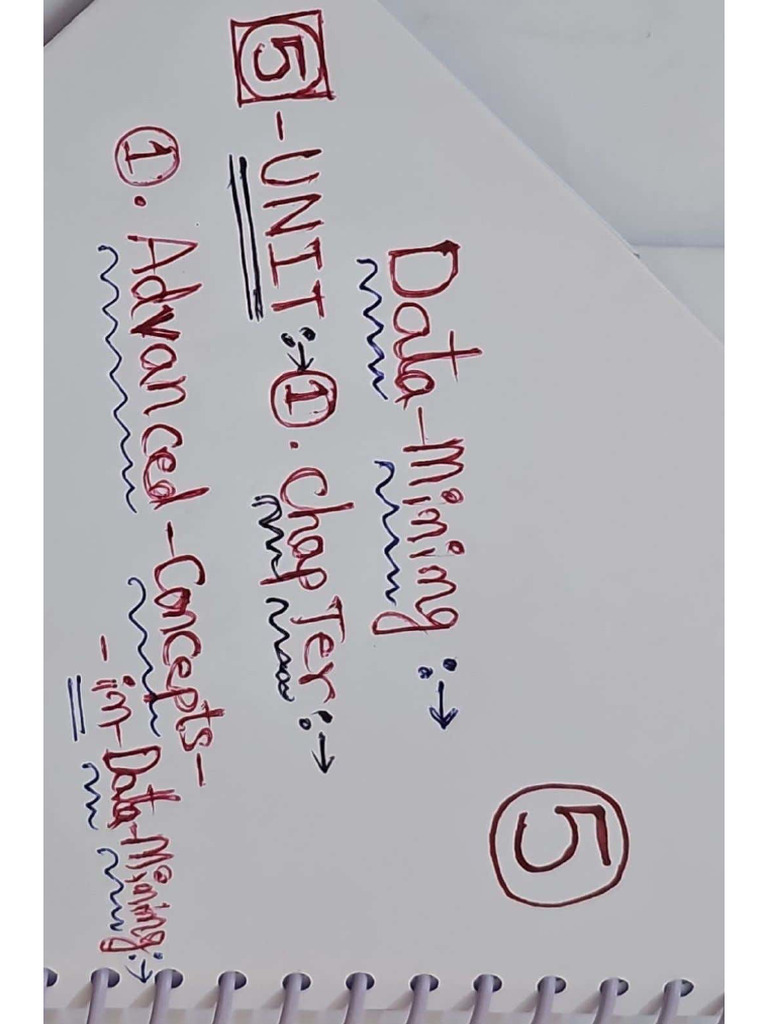 5
Data-Mining :→
5 - UNIT :→ 1. Chapter :→
1. Advanced - Concepts -
- in - Data-Mining :→